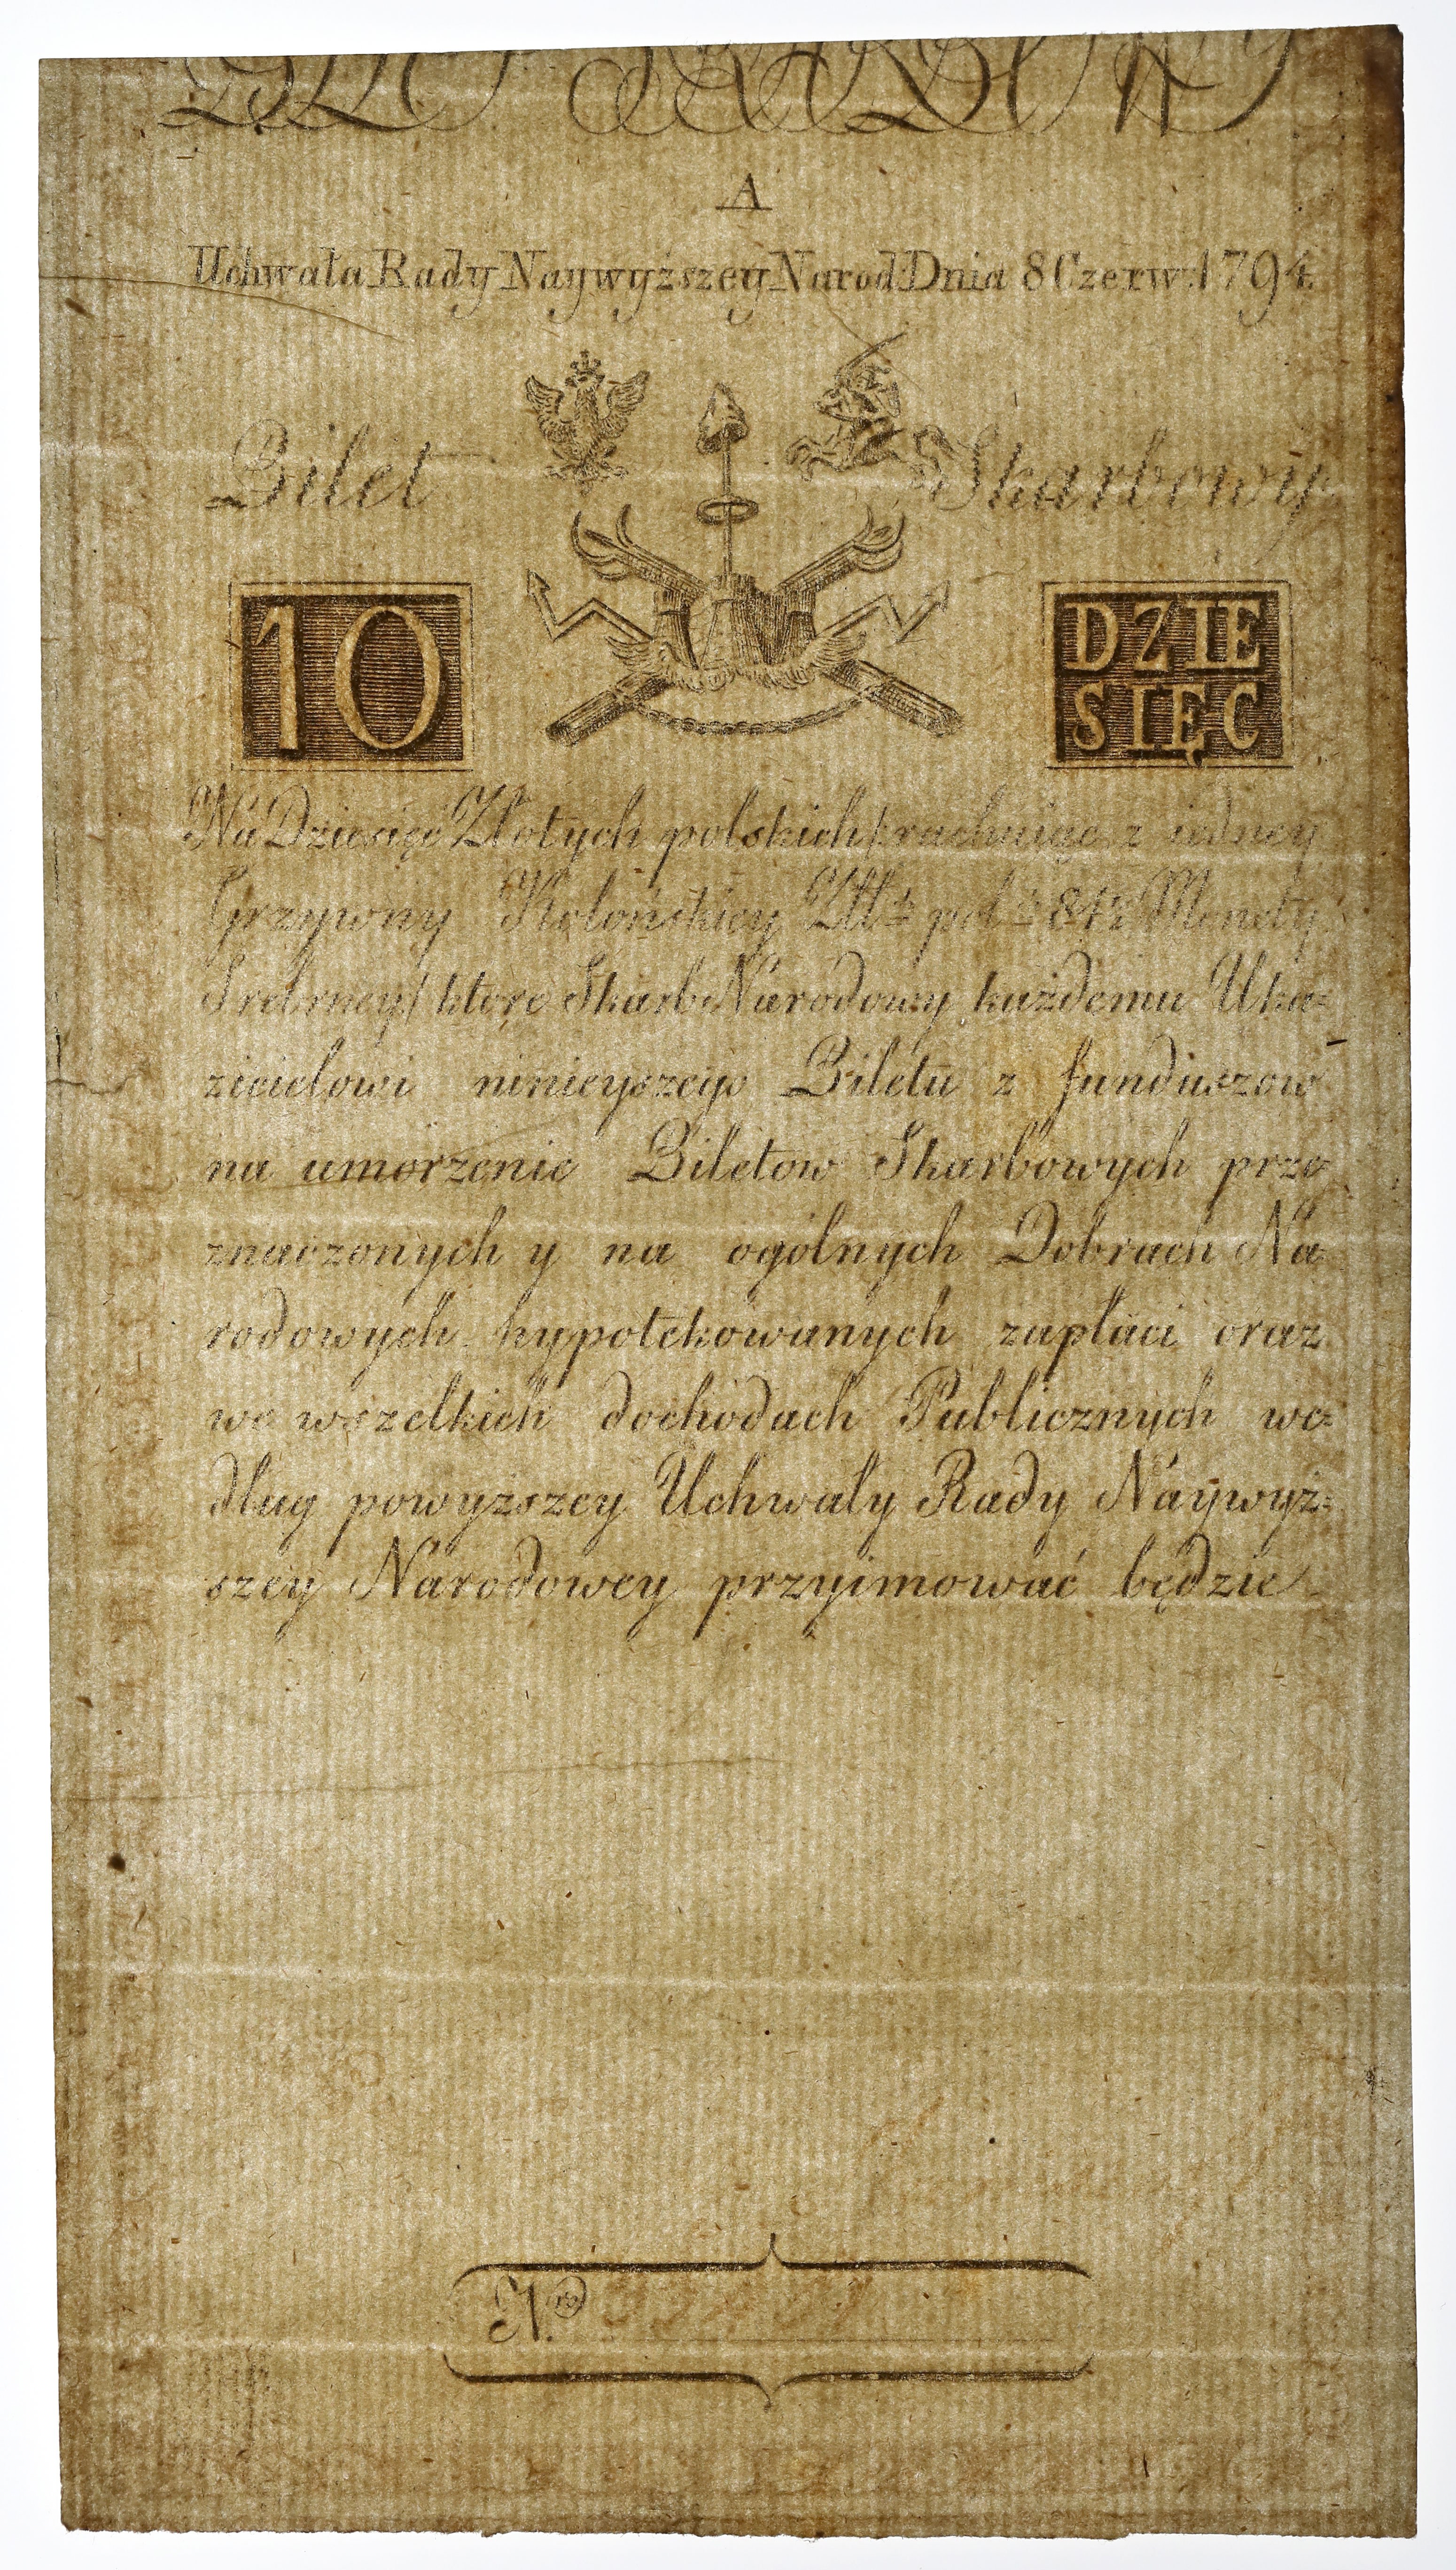 A
Uchwała Rady Naywyższey Narod: Dnia 8 Czerw: 1794.
Bilet Skarbowy
10 DZIE
SIĘC
Na Dziesięć Złotych polskich /rachuiąc z iedney
Grzywny Kolońskiey Złł: pol: 84½ Monety
Srebrney/ które Skarb Narodowy każdemu Uka=
zicielowi ninieyszego Biletu z funduszow
na umorzenie Biletow Skarbowych prze
znaczonych y na ogolnych Dobrach Na
rodowych hypotekowanych zapłaci oraz
we wszelkich dochodach Publicznych we=
dług powyższey Uchwały Rady Naywyż=
szey Narodowey przyimować będzie
N.ro